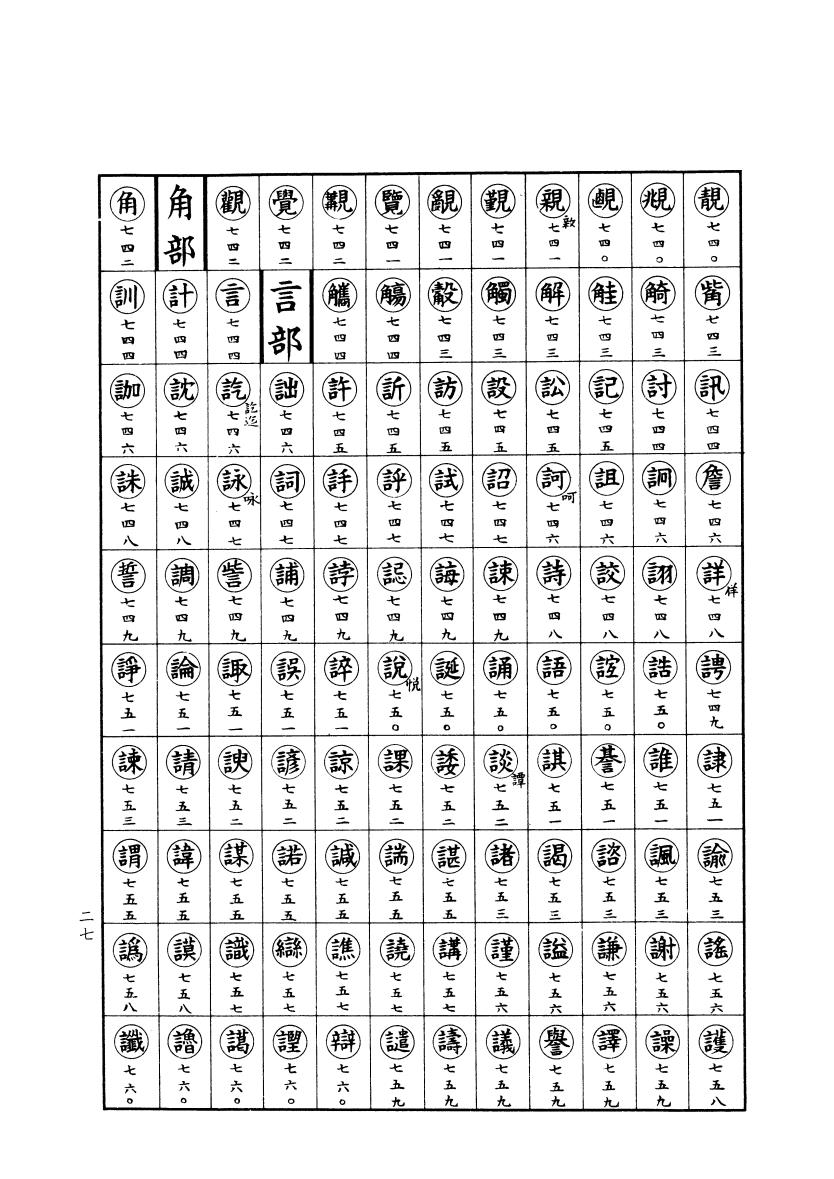 靚 七四〇
覜 七四〇
䚇 七四〇
親 敦 七四一
覲 七四一
覶 七四一
覽 七四一
觀 七四二
覺 七四二
觀 七四二
角部
角 七四二
觜 七四三
觭 七四三
觟 七四三
解 七四三
觸 七四三
觳 七四三
觴 七四四
觿 七四四
言部
言 七四四
計 七四四
訓 七四四
訊 七四四
討 七四四
記 七四五
訟 七四五
設 七四五
訪 七四五
訢 七四五
許 七四五
詘 七四六
訖 訖迄 七四六
訦 七四六
訷 七四六
詹 七四六
詗 七四六
詛 七四六
訶 呵 七四六
詔 七四七
試 七四七
評 七四七
詳 七四七
詞 七四七
詠 咏 七四七
誠 七四八
誅 七四八
詳 佯 七四八
詡 七四八
詨 七四八
詩 七四八
諫 七四九
誨 七四九
誋 七四九
誖 七四九
誧 七四九
訾 七四九
調 七四九
誓 七四九
諤 七四九
誥 七五〇
誙 七五〇
語 七五〇
誦 七五〇
誕 七五〇
說 悅 七五〇
誶 七五一
誤 七五一
諏 七五一
論 七五一
諍 七五一
諫 七五一
誰 七五一
諅 七五一
諆 七五一
談 譚 七五二
諉 七五二
課 七五二
諒 七五二
諺 七五二
諛 七五二
請 七五三
諫 七五三
諭 七五三
諷 七五三
諮 七五三
謁 七五三
諸 七五三
諶 七五五
諯 七五五
諴 七五五
諾 七五五
謀 七五五
諱 七五五
謂 七五五
謠 七五六
謝 七五六
謙 七五六
謚 七五六
謹 七五六
講 七五七
譊 七五七
譙 七五七
䜌 七五七
識 七五七
謨 七五八
譌 七五八
護 七五八
譟 七五九
譯 七五九
譽 七五九
議 七五九
譸 七五九
譴 七五九
辯 七六〇
謵 七六〇
譪 七六〇
譇 七六〇
讖 七六〇
二七